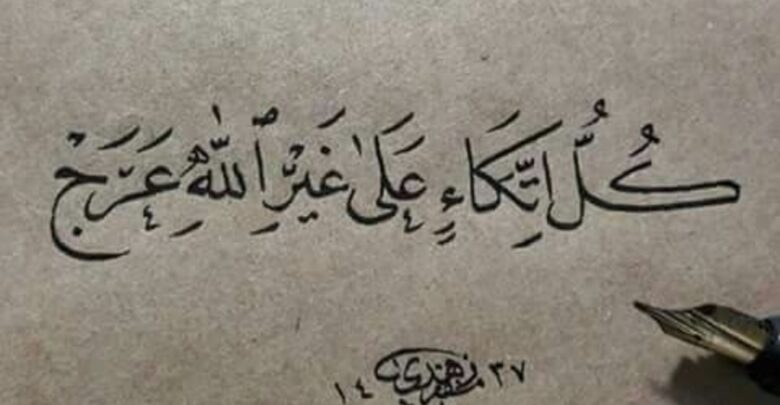 كُلُّ اتِّكَاءٍ عَلىٰ غَيْرِ ٱللّٰهِ عَرَجْ
١٤ ٣٧